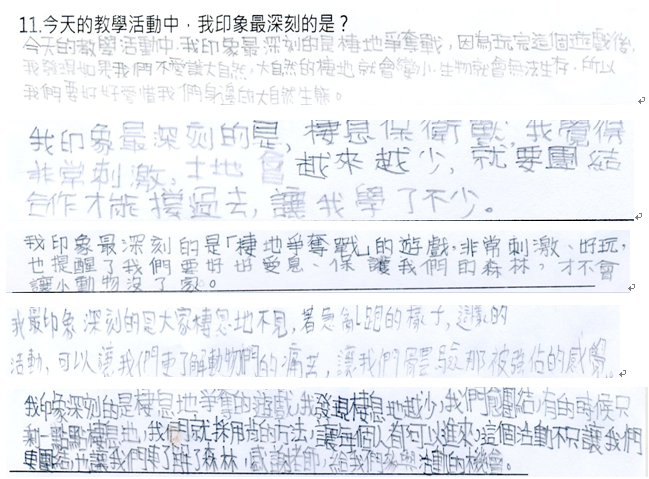 11.今天的教學活動中,我印象最深刻的是?
今天的教學活動中,我印象最深刻的是棲地爭奪戰,因為玩完這個遊戲後,
我發現如果我們不愛護大自然,大自然的棲地就會變小,生物就會無法生存,所以
我們要好好愛惜我們身邊的大自然生態。
我印象最深刻的是,棲息保衛戰,我覺得
非常刺激,土地會越來越少,就要團結
合作才能撐過去,讓我學了不少。
我印象最深刻的是「棲地爭奪戰」的遊戲,非常刺激、好玩,
也提醒了我們要好好愛息、保護我們的森林,才不會
讓小動物沒了家。
我最印象深刻的是大家棲息地不見,著急亂跑的樣子,這樣的
活動,可以讓我們更了解動物們的痛苦,讓我們體驗那被強佔的感覺。
我印象深刻的是棲息地爭奪的遊戲,我發現棲息地越少,我們愈團結,有的時候只
剩一點點棲息地,我們就採用的方法,讓每個人有可以進來,這個活動不只讓我們
更團結,也讓我們了解了森林,感謝老師,給我們參與活動的機會。